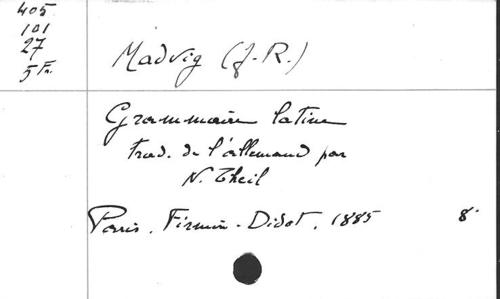 405
101
27
5 Fr.
Madvig (J.-R.)
Grammaire latine
trad. de l'allemand par
N. Theil
Paris, Firmin-Didot, 1885 8°